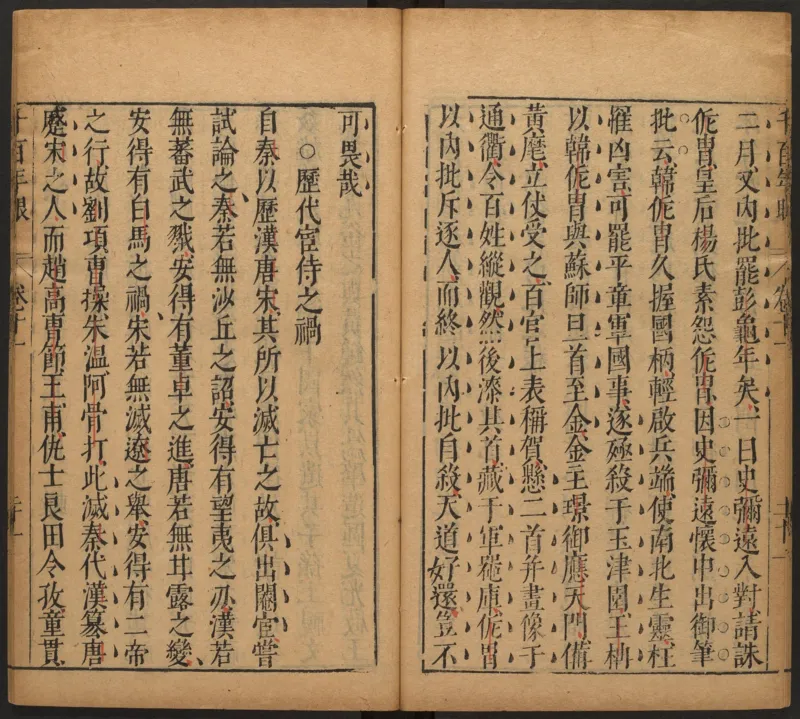 二月又內批罷彭龜年矣一日史彌遠入對請誅
侂胄皇后楊氏素怨侂胄因史彌遠懷中出御筆
批云韓侂胄久握國柄輕啟兵端使南北生靈枉
罹凶害可罷平章軍國事遂殛殺于玉津園王柟
以韓侂胄與蘇師旦首至金金主璟御應天門備
黃麾立仗受之百官上表稱賀懸二首并畫像于
通衢令百姓縱觀然後漆其首藏于軍器庫侂胄
以內批斥逐人而終以內批自殺天道好還豈不
可畏哉
○歷代宦侍之禍
自秦以歷漢唐宋其所以滅亡之故俱出閹宦嘗
試論之秦若無沙丘之詔安得有望夷之刃漢若
無蕃武之戮安得有董卓之進唐若無甘露之變
安得有白馬之禍宋若無滅遼之舉安得有二帝
之行故劉項曹操朱溫阿骨打此滅秦代漢篡唐
蹙宋之人而趙高曹節王甫仇士良田令孜童貫
千百年眼 卷十一 二十一